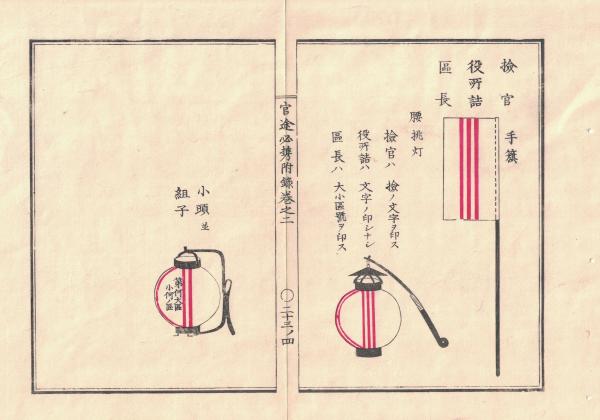 撿官
役所詰
區長
手籏
腰挑灯
撿官ハ 撿ノ文字ヲ印ス
役所詰ハ 文字ノ印シナシ
區長ハ 大小區號ヲ印ス
官途必携附錄巻之二
〇二十三ノ四
小頭並
組子
第何大區
小何ノ區